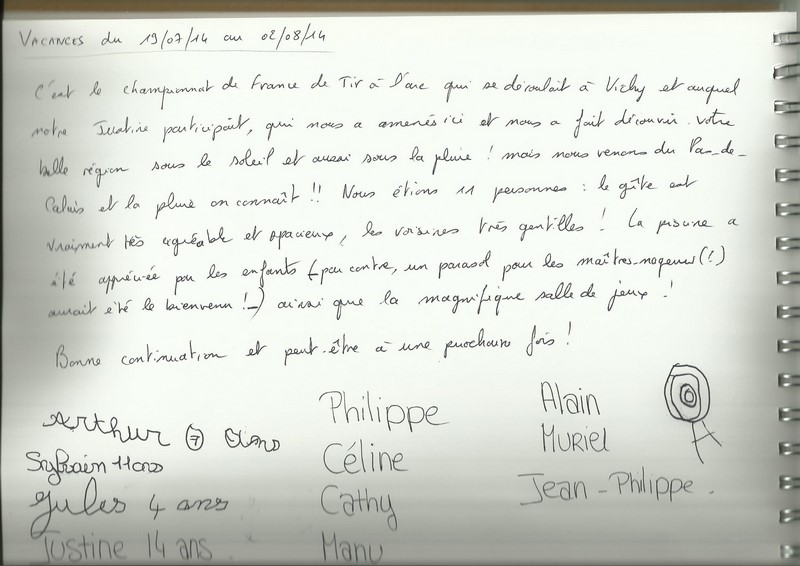 VACANCES du 19/07/14 au 02/08/14
C'est le championnat de France de Tir à l'arc qui se déroulait à Vichy et auquel
notre Justine participait, qui nous a amenés ici et nous a fait découvrir votre
belle région sous le soleil et aussi sous la pluie ! mais nous venons du Pas-de-
Calais et la pluie on connaît !! Nous étions 11 personnes : le gîte est
vraiment très agréable et spacieux, les voisines très gentilles ! La piscine a
été appréciée par les enfants (par contre, un parasol pour les maîtres-nageurs (!)
aurait été le bienvenu !-) ainsi que la magnifique salle de jeux !
Bonne continuation et peut-être à une prochaine fois !
Arthur 7 ans
Sylvain 11 ans
Jules 4 ans
Justine 14 ans
Philippe
Céline
Cathy
Manu
Alain
MURIEL
Jean-Philippe.